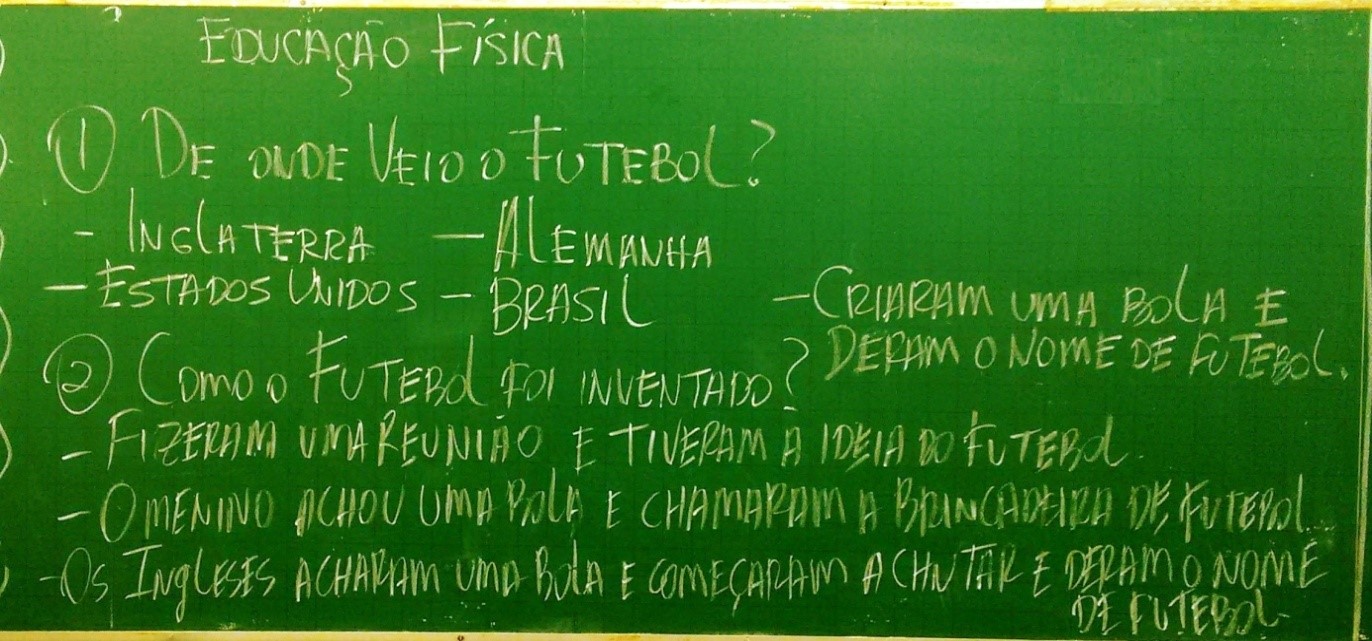 EDUCAÇÃO FÍSICA
① DE ONDE VEIO O FUTEBOL?
- INGLATERRA - ALEMANHA
- ESTADOS UNIDOS - BRASIL
② COMO O FUTEBOL FOI INVENTADO?
- CRIARAM UMA BOLA E
DERAM O NOME DE FUTEBOL.
- FIZERAM UMA REUNIÃO E TIVERAM A IDEIA DO FUTEBOL.
- O MENINO ACHOU UMA BOLA E CHAMARAM A BRINCADEIRA DE FUTEBOL
- OS INGLESES ACHARAM UMA BOLA E COMEÇARAM A CHUTAR E DERAM O NOME
DE FUTEBOL